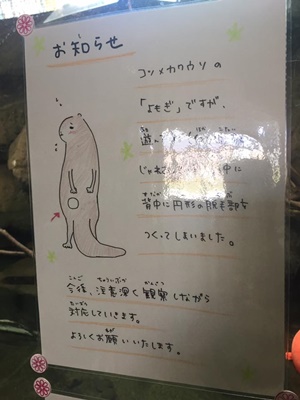 お知らせ
コツメカワウソの
「よもぎ」ですが、
遊ん
じゃれ 中に
背中に円形の脱毛部を
つくってしまいました。
今後、注意深く観察しながら
対応していきます。
よろしくお願いいたします。